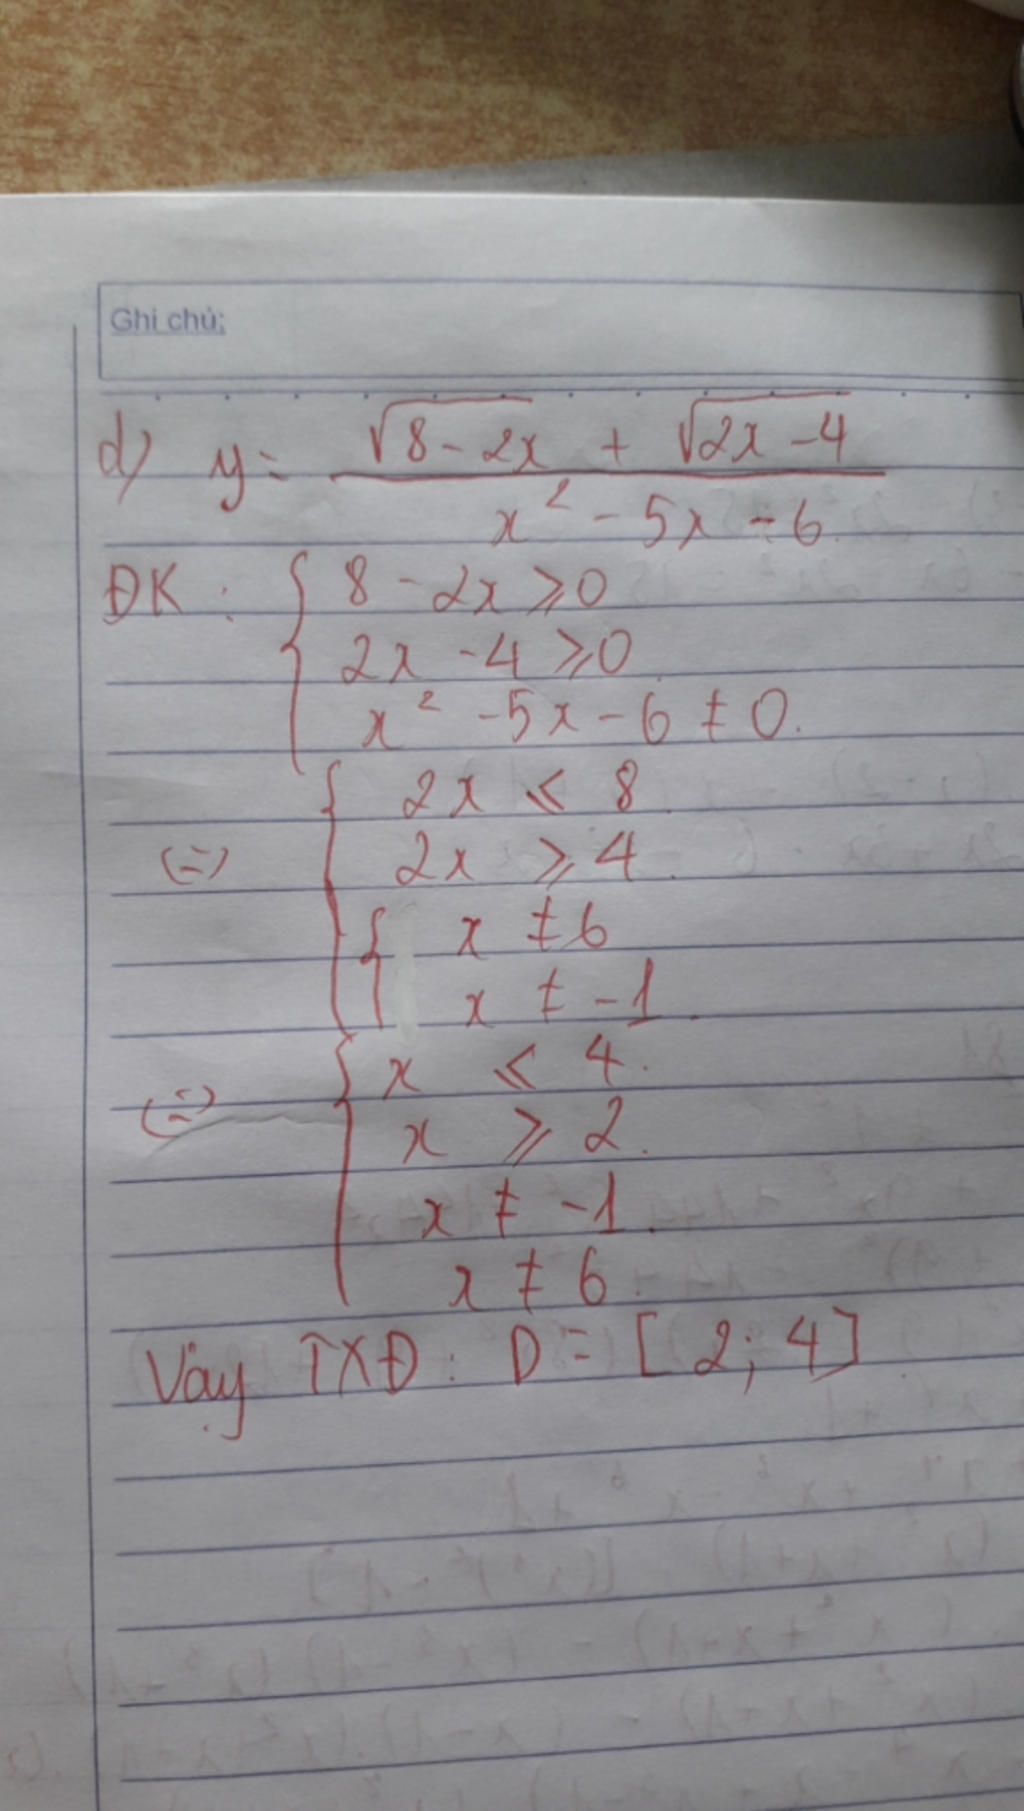 Ghi chú:
d) y = \frac{\sqrt{8-2x} + \sqrt{2x-4}}{x^2 - 5x - 6}
ĐK : { 8 - 2x ⩾ 0
2x - 4 ⩾ 0
x^2 - 5x - 6 ≠ 0.
(=) { 2x ⩽ 8
2x ⩾ 4.
{ x ≠ 6
x ≠ -1.
(=) { x ⩽ 4.
x ⩾ 2.
x ≠ -1.
x ≠ 6.
Vậy TXĐ: D = [2; 4]